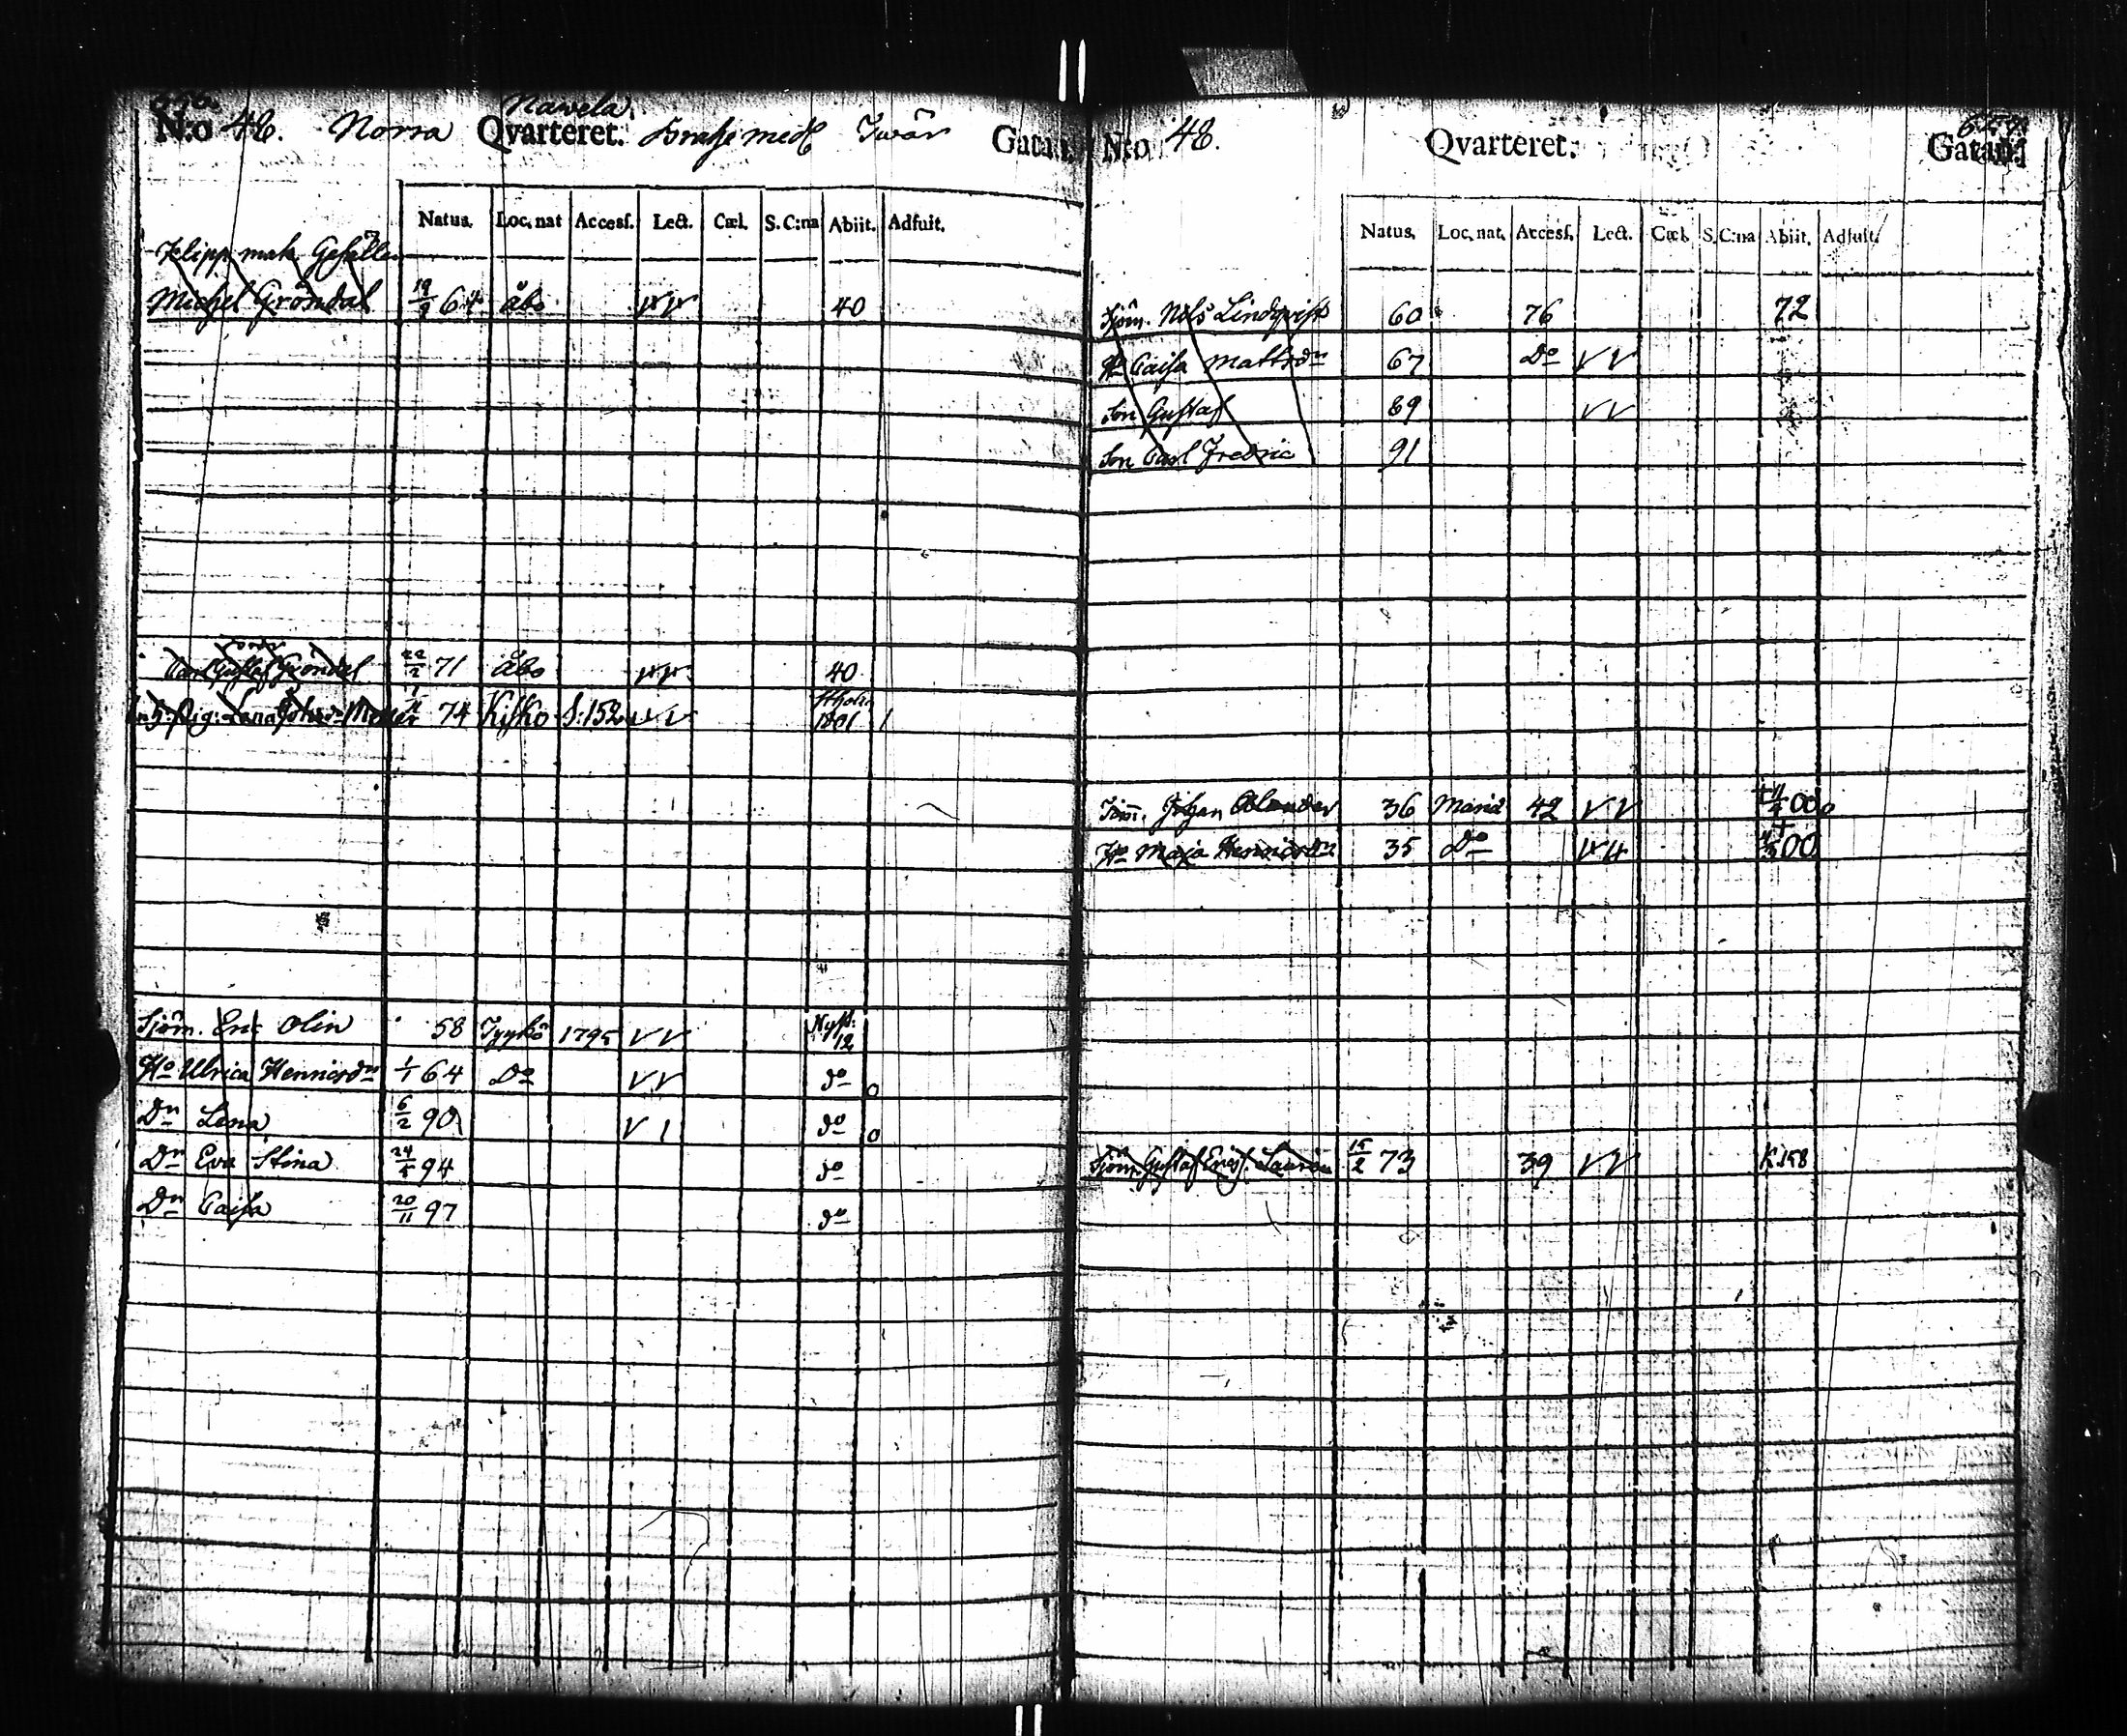 656.
Nawela
N:o 48. Norra Qvarteret. Twär Gatan.
Natus. Loc. nat Access. Lect. Cæl. S. C:na Abiit. Adfuit.
Klipp. mak. Gesällen
Michel Gröndal 19/9 64 Åbo VV 40
Carl Gustaf Gröndal 22/2 71 Åbo VV 40
Pig: Lena 74 Kisko S:152 VV Stholm 1801
Sjöm. Eric Olin 58 1795 VV Nyst. 12
Ho Ulrica Henricsdr 1/1 64 Do VV do
Dr Lena 6/2 90 V I do
Dr Eva Stina 24/5 94 do
Dr Caisa 20/11 97 do
657.
N:o 48. Qvarteret. Gatan.
Natus. Loc. nat. Access. Lect. Cæl. S. C:na Abiit. Adfuit.
Sjöm. Nils Lindqvist 60 76 72
Ho Caisa Mattsdr 67 Do VV
Son Gustaf 89 VV
Son Carl Fredric 91
Johan 36 Maria 42 VV 00
Ho Maja Henricsdr 35 Do VV 00
Sjöm. Gustaf Ericss. 15/2 73 39 VV K.158